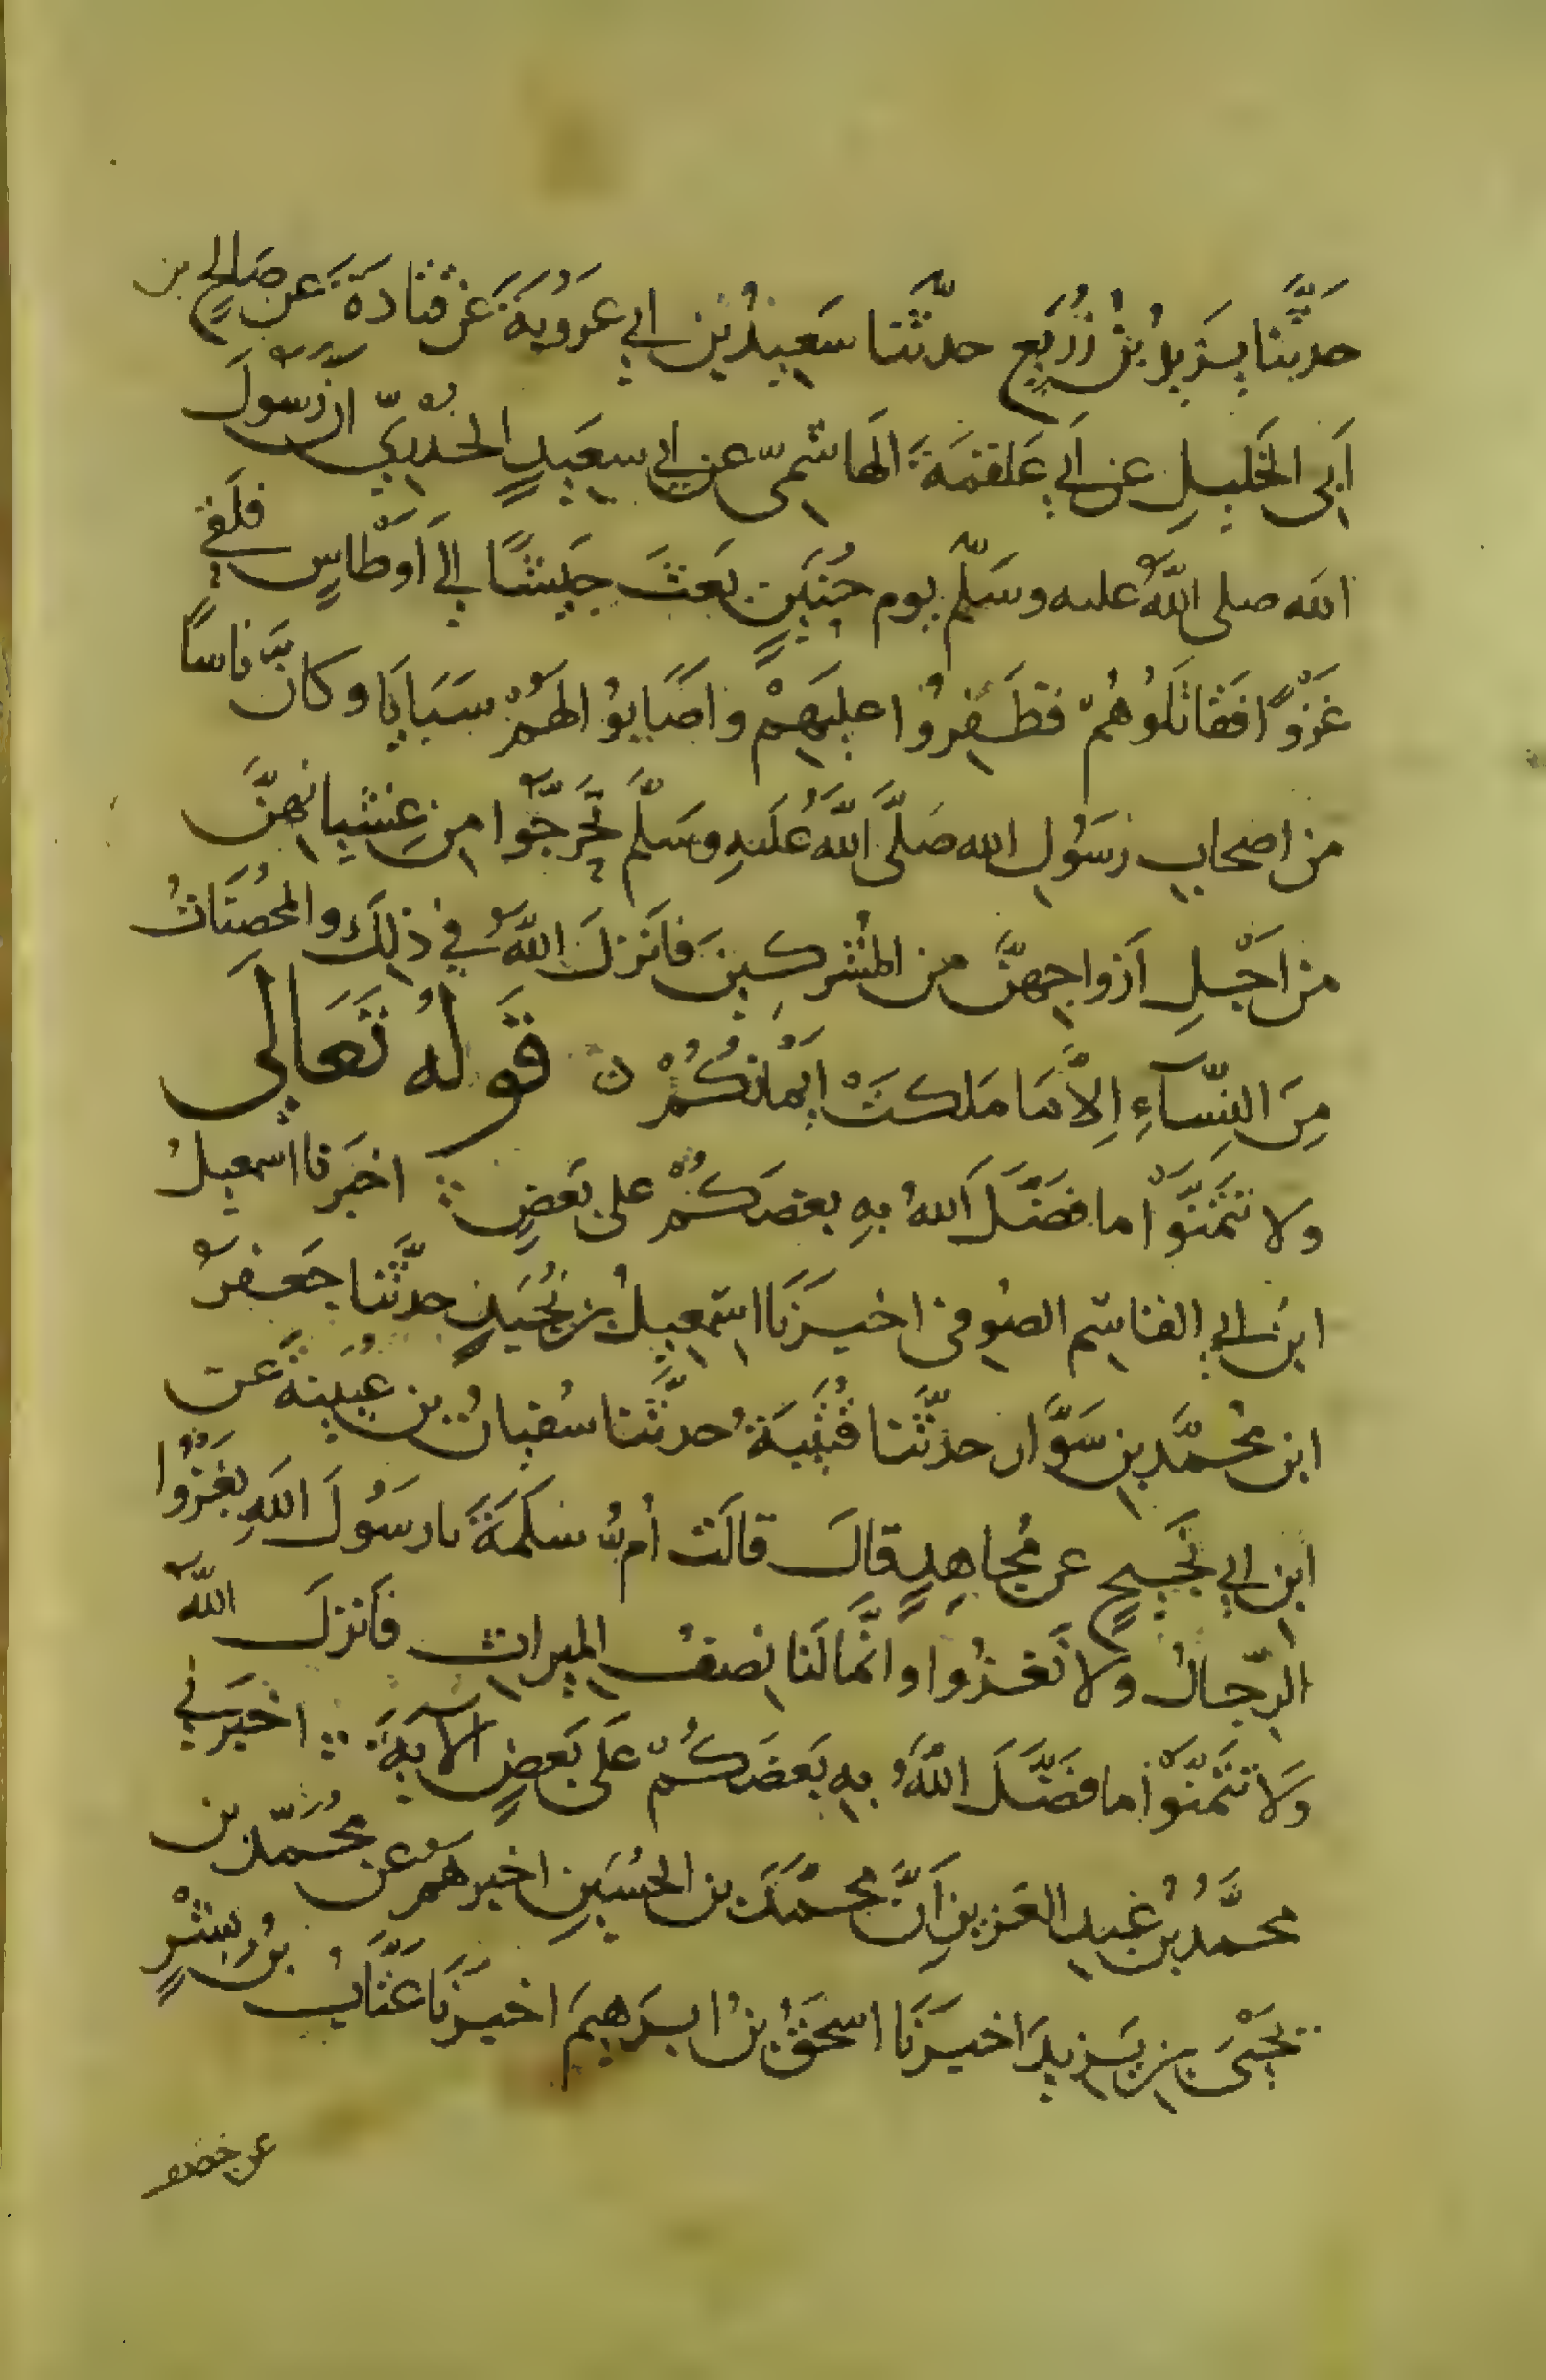 حَدَّثَنا يَزيدُ بنُ زُرَيعٍ حدّثَنا سَعيدُ بن ابي عَرُوبةَ عَن قتادَةَ عَن صَالحٍ بن
اَبى الخَليلِ عن اَبي عَلقمَةَ الهاشميّ عن ابي سعيدٍ الخُدْريّ انّ رَسُولَ
الله صلى اللهُ عليه وسَلّم يوم حُنَينٍ بَعثَ جَيشًا الي اَوطاسٍ فلَقي
غَزوًّا فَقاتَلُوهُمْ فظَفِرُوا عليهِمْ واصَابُوا لهَمُ سَبَايَا وكانَ ناسًا
من اصحابِ رَسُولِ الله صَلَّى اللهُ عَلَيهِ وسَلَّم تحَرَّجُوا مِن غِشيانهنَّ
من اَجْلِ اَزواجِهنَّ من المُشركِينَ فاَنزلَ اللهُ في ذلِكَ والمُحصَنَاتُ
مِنَ النِّسَآءِ اِلاَّ مَا مَلكتْ اَيْمانُكُمْ ن قَولُهُ تَعَالَى
ولا تتَمَنَّوْا ما فضَّلَ اللهُ بِهِ بعضَكُمْ على بَعضٍ اخبَرنا اسمعيلُ
ابن ابي القاسِم الصُوفى اخبرَنَا اسمعِيلُ بن نُجَيدٍ حدَّثنا جَعفرُ
ابن محُمَّد بنِ سَوَّار حدّثَنا قُتَيبَةُ حدثَّنا سُفيانُ بن عُيَينةَ عَن
ابنِ ابي نَجيحٍ عن مُجاهِدٍ قالَ قالَت اُمُّ سَلَمَةَ يا رسُولَ اللهِ يغزُوا
الرّجالُ ولا نَغزُوا وانَّمَا لَنا نِصفُ الميراثِ فاَنزلَ اللهُ
وَلا تتَمَنَّوْا ما فضَّلَ اللهُ بِهِ بَعضَكُمْ عَلَى بَعضٍ الآيَةَ اخبَرني
محمَّدُ بنُ عَبدِ العَزيزِ اَنَّ محمَّدَ بن الحُسَينِ اخبرهمُ عن محُمَّد بن
يَحيىَ بنِ يَزيدَ اخبرَنَا اسحَقُ بنُ ابرَهِيمَ اخبرَنَا عَتَّابُ بنُ بشرٍ
عن خصيف